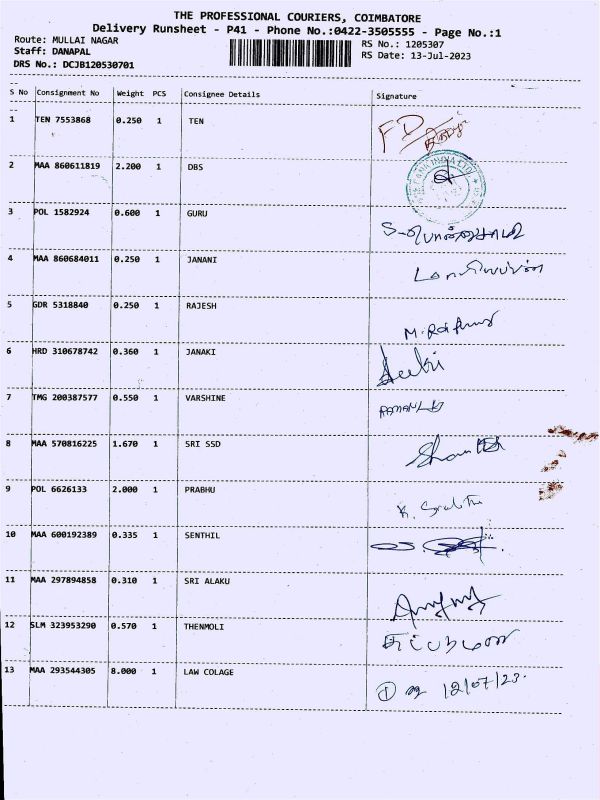 THE PROFESSIONAL COURIERS, COIMBATORE
Delivery Runsheet - P41 - Phone No.:0422-3505555 - Page No.:1
Route: MULLAI NAGAR RS No.: 1205307
Staff: DANAPAL RS Date: 13-Jul-2023
DRS No.: DCJB120530701
S No Consignment No Weight PCS Consignee Details Signature
1 TEN 7553868 0.250 1 TEN FD
2 MAA 860611819 2.200 1 DBS
3 POL 1582924 0.600 1 GURU
4 MAA 860684011 0.250 1 JANANI
5 GDR 5318840 0.250 1 RAJESH
6 HRD 310678742 0.360 1 JANAKI
7 TMG 200387577 0.550 1 VARSHINE
8 MAA 570816225 1.670 1 SRI SSD
9 POL 6626133 2.000 1 PRABHU
10 MAA 600192389 0.335 1 SENTHIL
11 MAA 297894858 0.310 1 SRI ALAKU
12 SLM 323953290 0.570 1 THENMOLI
13 MAA 293544305 8.000 1 LAW COLAGE 12/07/23.